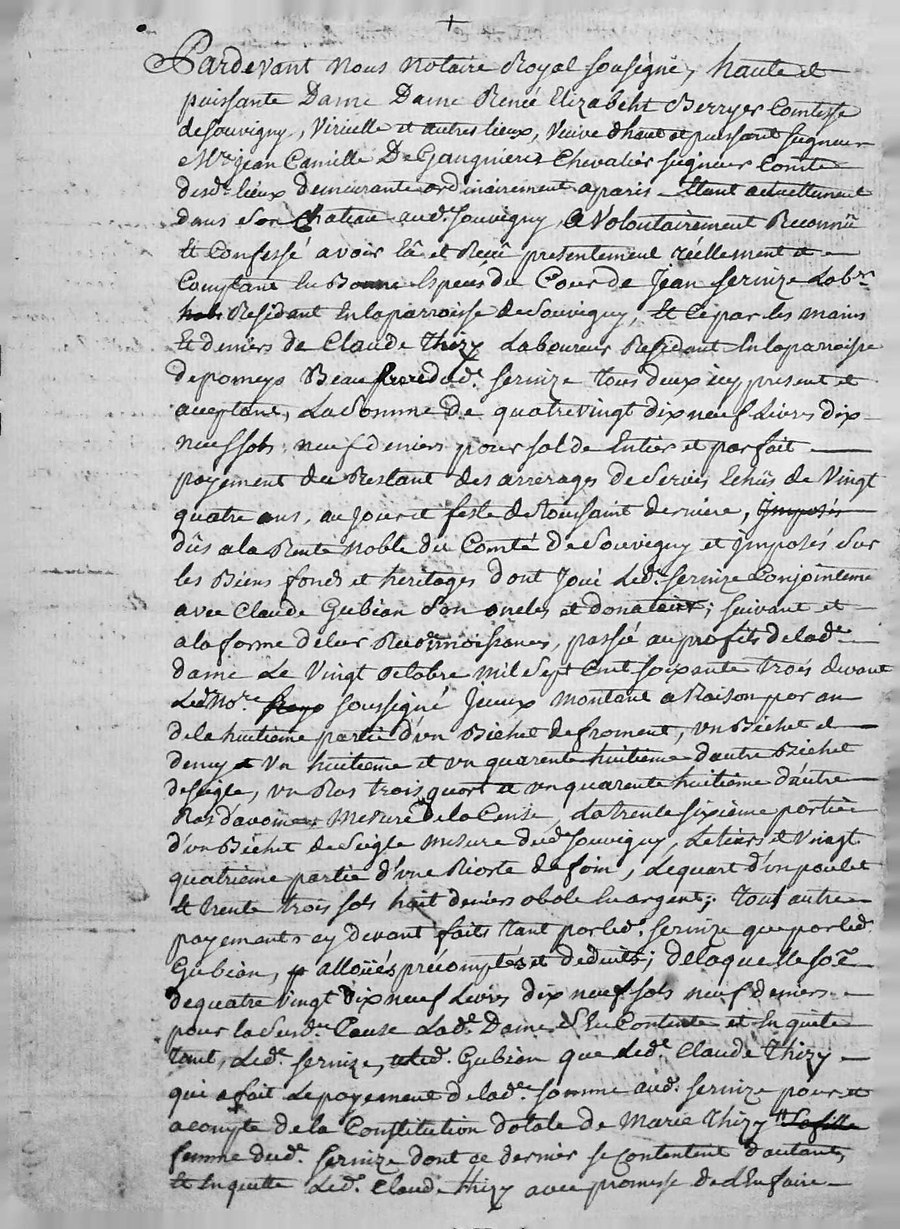 +
Pardevant Nous Notaire Royal sousigné, haute et
puissante Dame Dame Renée Elizabeht Berryer Comtesse
de Souvigny, Virielle et autres lieux, Veuve d'haut et puissant seigneur
Mre jean Camille De Gangnieres Chevalier seigneur Comte
desd. lieux demeurante ordinairement a paris Etant actuellement
dans son Chateau aud. Souvigny, a Volontairement Reconnû
Et Confessé avoir Eû et Reçû presentement réellement et
Comptant En Bonne Especes du Cour de Jean serinze Labr.
Residant En la parroisse de Souvigny, Et Ce par les mains
Et deniers de Claude Thizy Laboureur Residant En la paroisse
de pomeys Beau frere dud. serinze tous deux icy present et
aceptant, La Somme de quatre vingt dix neuf Livres dix
neuf sols neuf deniers pour solde Entier et parfait
payement du Restant des arrérages de Servis Echûs de Vingt
quatre ans, au Jour et feste de Toussaint derniere, Imposés
dûs a la Rente Noble du Comté De Souvigny et Jmposés Sur
les Biens fonds et heritages dont Joui Led. serinze Conjointemt
avec Claude Gubian son oncle, et donateur; suivant et
a la forme de leur Reconnoissance, passée au profits de lad.
dame Le Vingt octobre mil Sept Cent soixante trois devant
Led. Nore soussigné Jceux montant a Raison par an
de la huitième partie d'un Bichet de froment, un Bichet et
demy Un huitieme et un quarente huitieme d'autre Bichet
de segle, un Ras trois quart et un quarente huitieme d'autre
Ras d'avoine, Mesure de la Cense, La trente sixième partie
d'un Bichet de Seigle mesure dud. Souvigny, Le tiers et Vingt
quatrième partie d'une Rioste de foin, Le quart d'un poulet
Et trente trois sols huit deniers obole En argent; tous autre
payements cy devant faits tant par led. serinze que par led.
Gubian, alloüés précomptés et deduits; de laquelle soe
de quatre vingt dix neuf Livres dix neuf sols neuf deniers
pour la Susd. Cause Lad. Dame S'En Contente et En quite
tant, Led. serinze, Gubian que Led. Claude Thizy
qui a fait Le payement de lad. somme aud. serinze pour et
a compte de la Constitution dotale de Marie Thizy
femme dud. serinze dont ce dernier se contentent d'autant,
Et En quitte Led. Claude thizy avec promesse de d'En faire